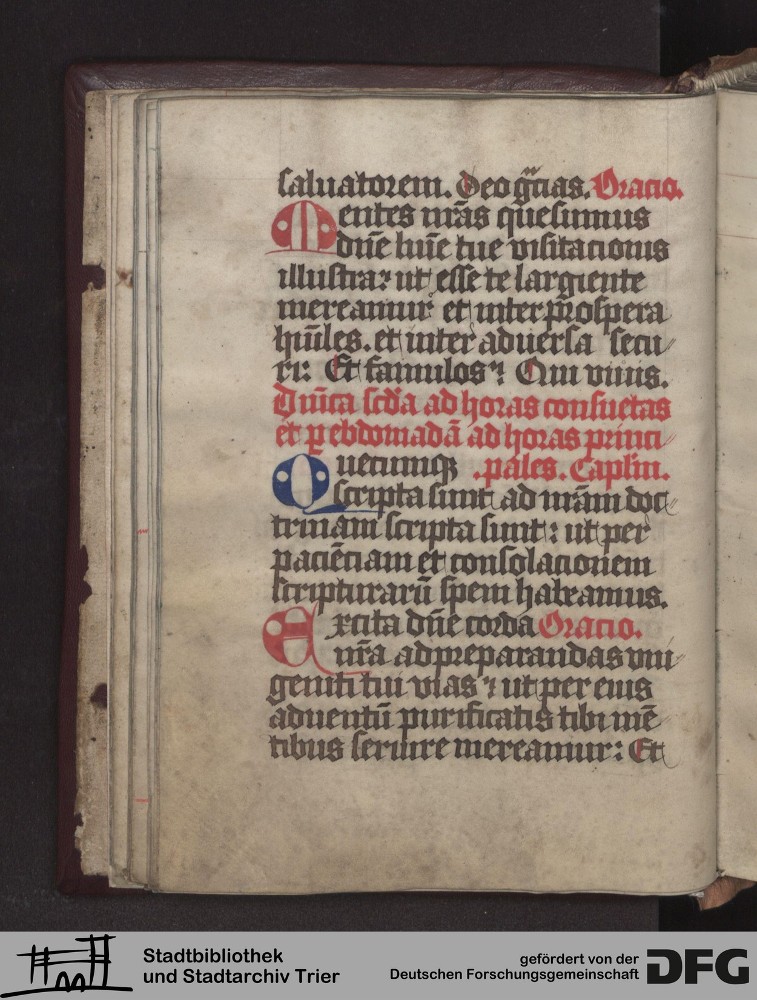 saluatorem. Deo gr̃cias. Oracio.
Mentes nr̃as quesumus
dn̄e lum̄e tue visitacionis
illustra: ut esse te largiente
mereamur et inter prospera
hum̄les. et inter aduersa secu
ri: Et famulos: Qui viuis.
Dn̄ica scd̄a ad horas consuetas
et ꝑ ebdomadā ad horas princi
Quecumqꝫ .pales. Caplm̄.
scripta sunt ad nr̄am doc
trinam scripta sunt: ut per
paciēciam et consolacionem
scripturarū spem habeamus.
Excita dn̄e corda Oracio.
nr̄a ad preparandas vni
geniti tui vias: ut per eius
aduentū purificatis tibi mē
tibus seruire mereamur: Et
Stadtbibliothek
und Stadtarchiv Trier
gefördert von der
Deutschen Forschungsgemeinschaft
DFG